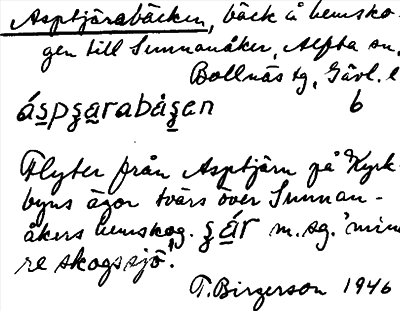 Asptjärabäcken, bäck å hemsko-
gen till Sunnanåker, Alfta sn,
Bollnäs tg, Gävl. l
áspʒarabåʒen 6
Flyter från Asptjärn på Kyrk-
byns ägor tvärs över Sunnan-
åkers hemskog. ʒár m. sg. 'mind
re skogssjö'.
T. Birgerson 1946